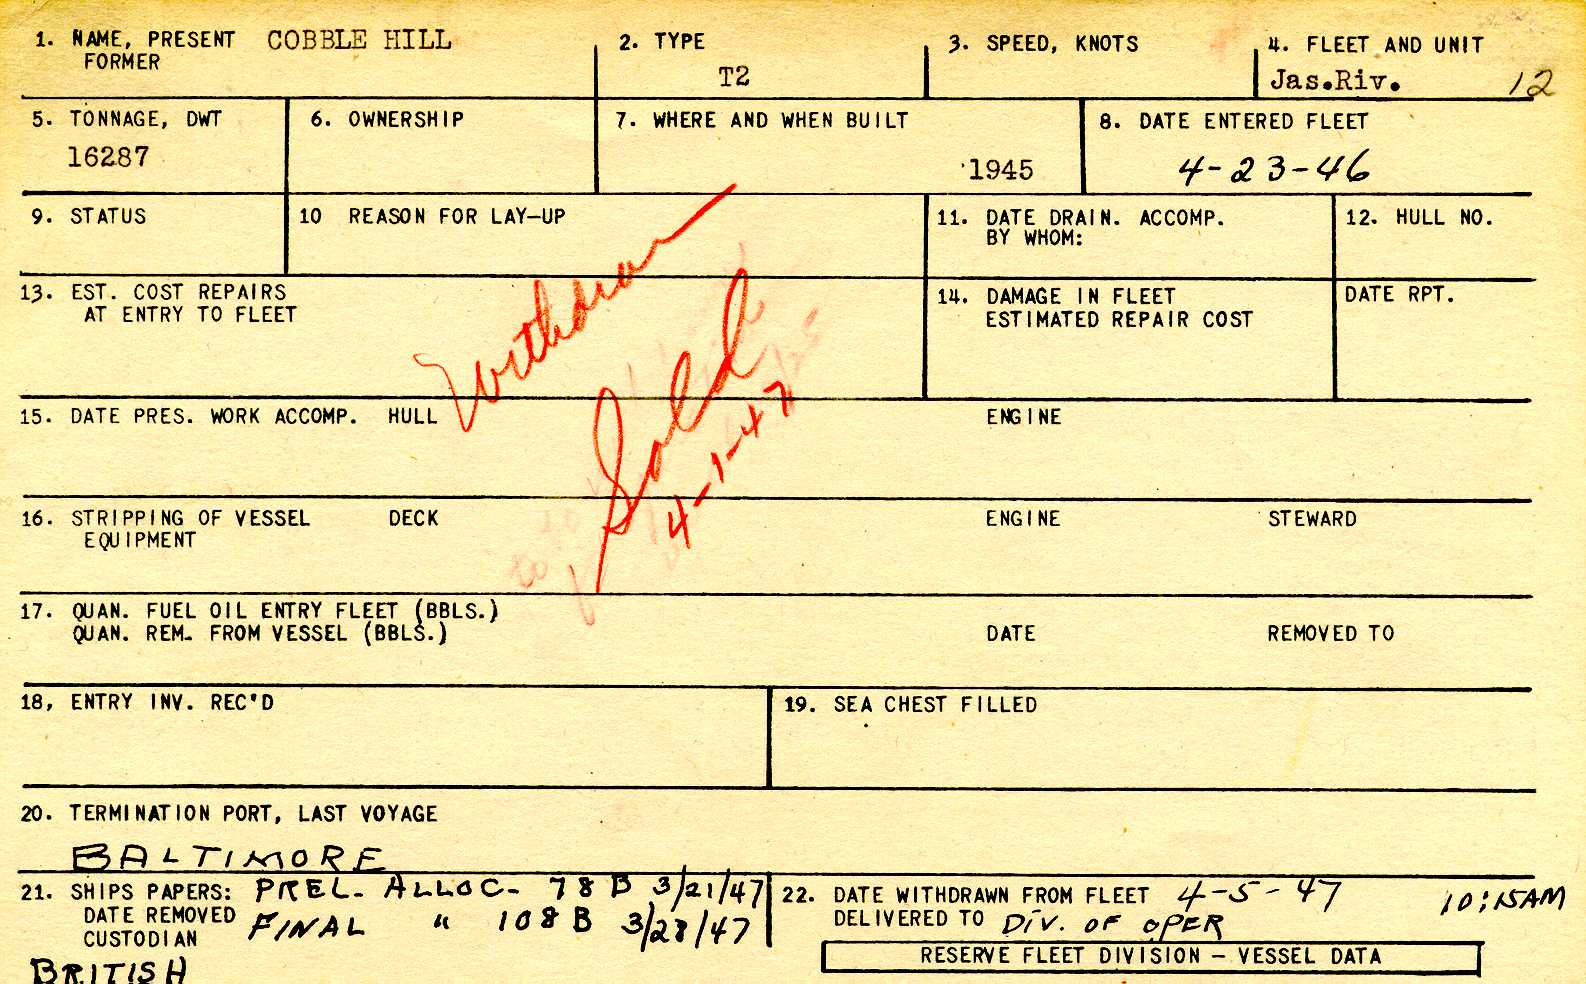 1. NAME, PRESENT COBBLE HILL
FORMER
2. TYPE
T2
3. SPEED, KNOTS
4. FLEET AND UNIT
Jas.Riv. 12
5. TONNAGE, DWT
16287
6. OWNERSHIP
7. WHERE AND WHEN BUILT
1945
8. DATE ENTERED FLEET
4-23-46
9. STATUS
10 REASON FOR LAY-UP
11. DATE DRAIN. ACCOMP.
BY WHOM:
12. HULL NO.
13. EST. COST REPAIRS
AT ENTRY TO FLEET
14. DAMAGE IN FLEET
ESTIMATED REPAIR COST
DATE RPT.
Withdrawn
Sold
4-1-47
15. DATE PRES. WORK ACCOMP. HULL ENGINE
16. STRIPPING OF VESSEL DECK ENGINE STEWARD
EQUIPMENT
17. QUAN. FUEL OIL ENTRY FLEET (BBLS.)
QUAN. REM. FROM VESSEL (BBLS.) DATE REMOVED TO
18, ENTRY INV. REC'D
19. SEA CHEST FILLED
20. TERMINATION PORT, LAST VOYAGE
BALTIMORE
21. SHIPS PAPERS: PREL. ALLOC- 78B 3/21/47
DATE REMOVED FINAL " 108B 3/28/47
CUSTODIAN
BRITISH
22. DATE WITHDRAWN FROM FLEET 4-5-47 10:15AM
DELIVERED TO DIV. OF OPER
RESERVE FLEET DIVISION - VESSEL DATA